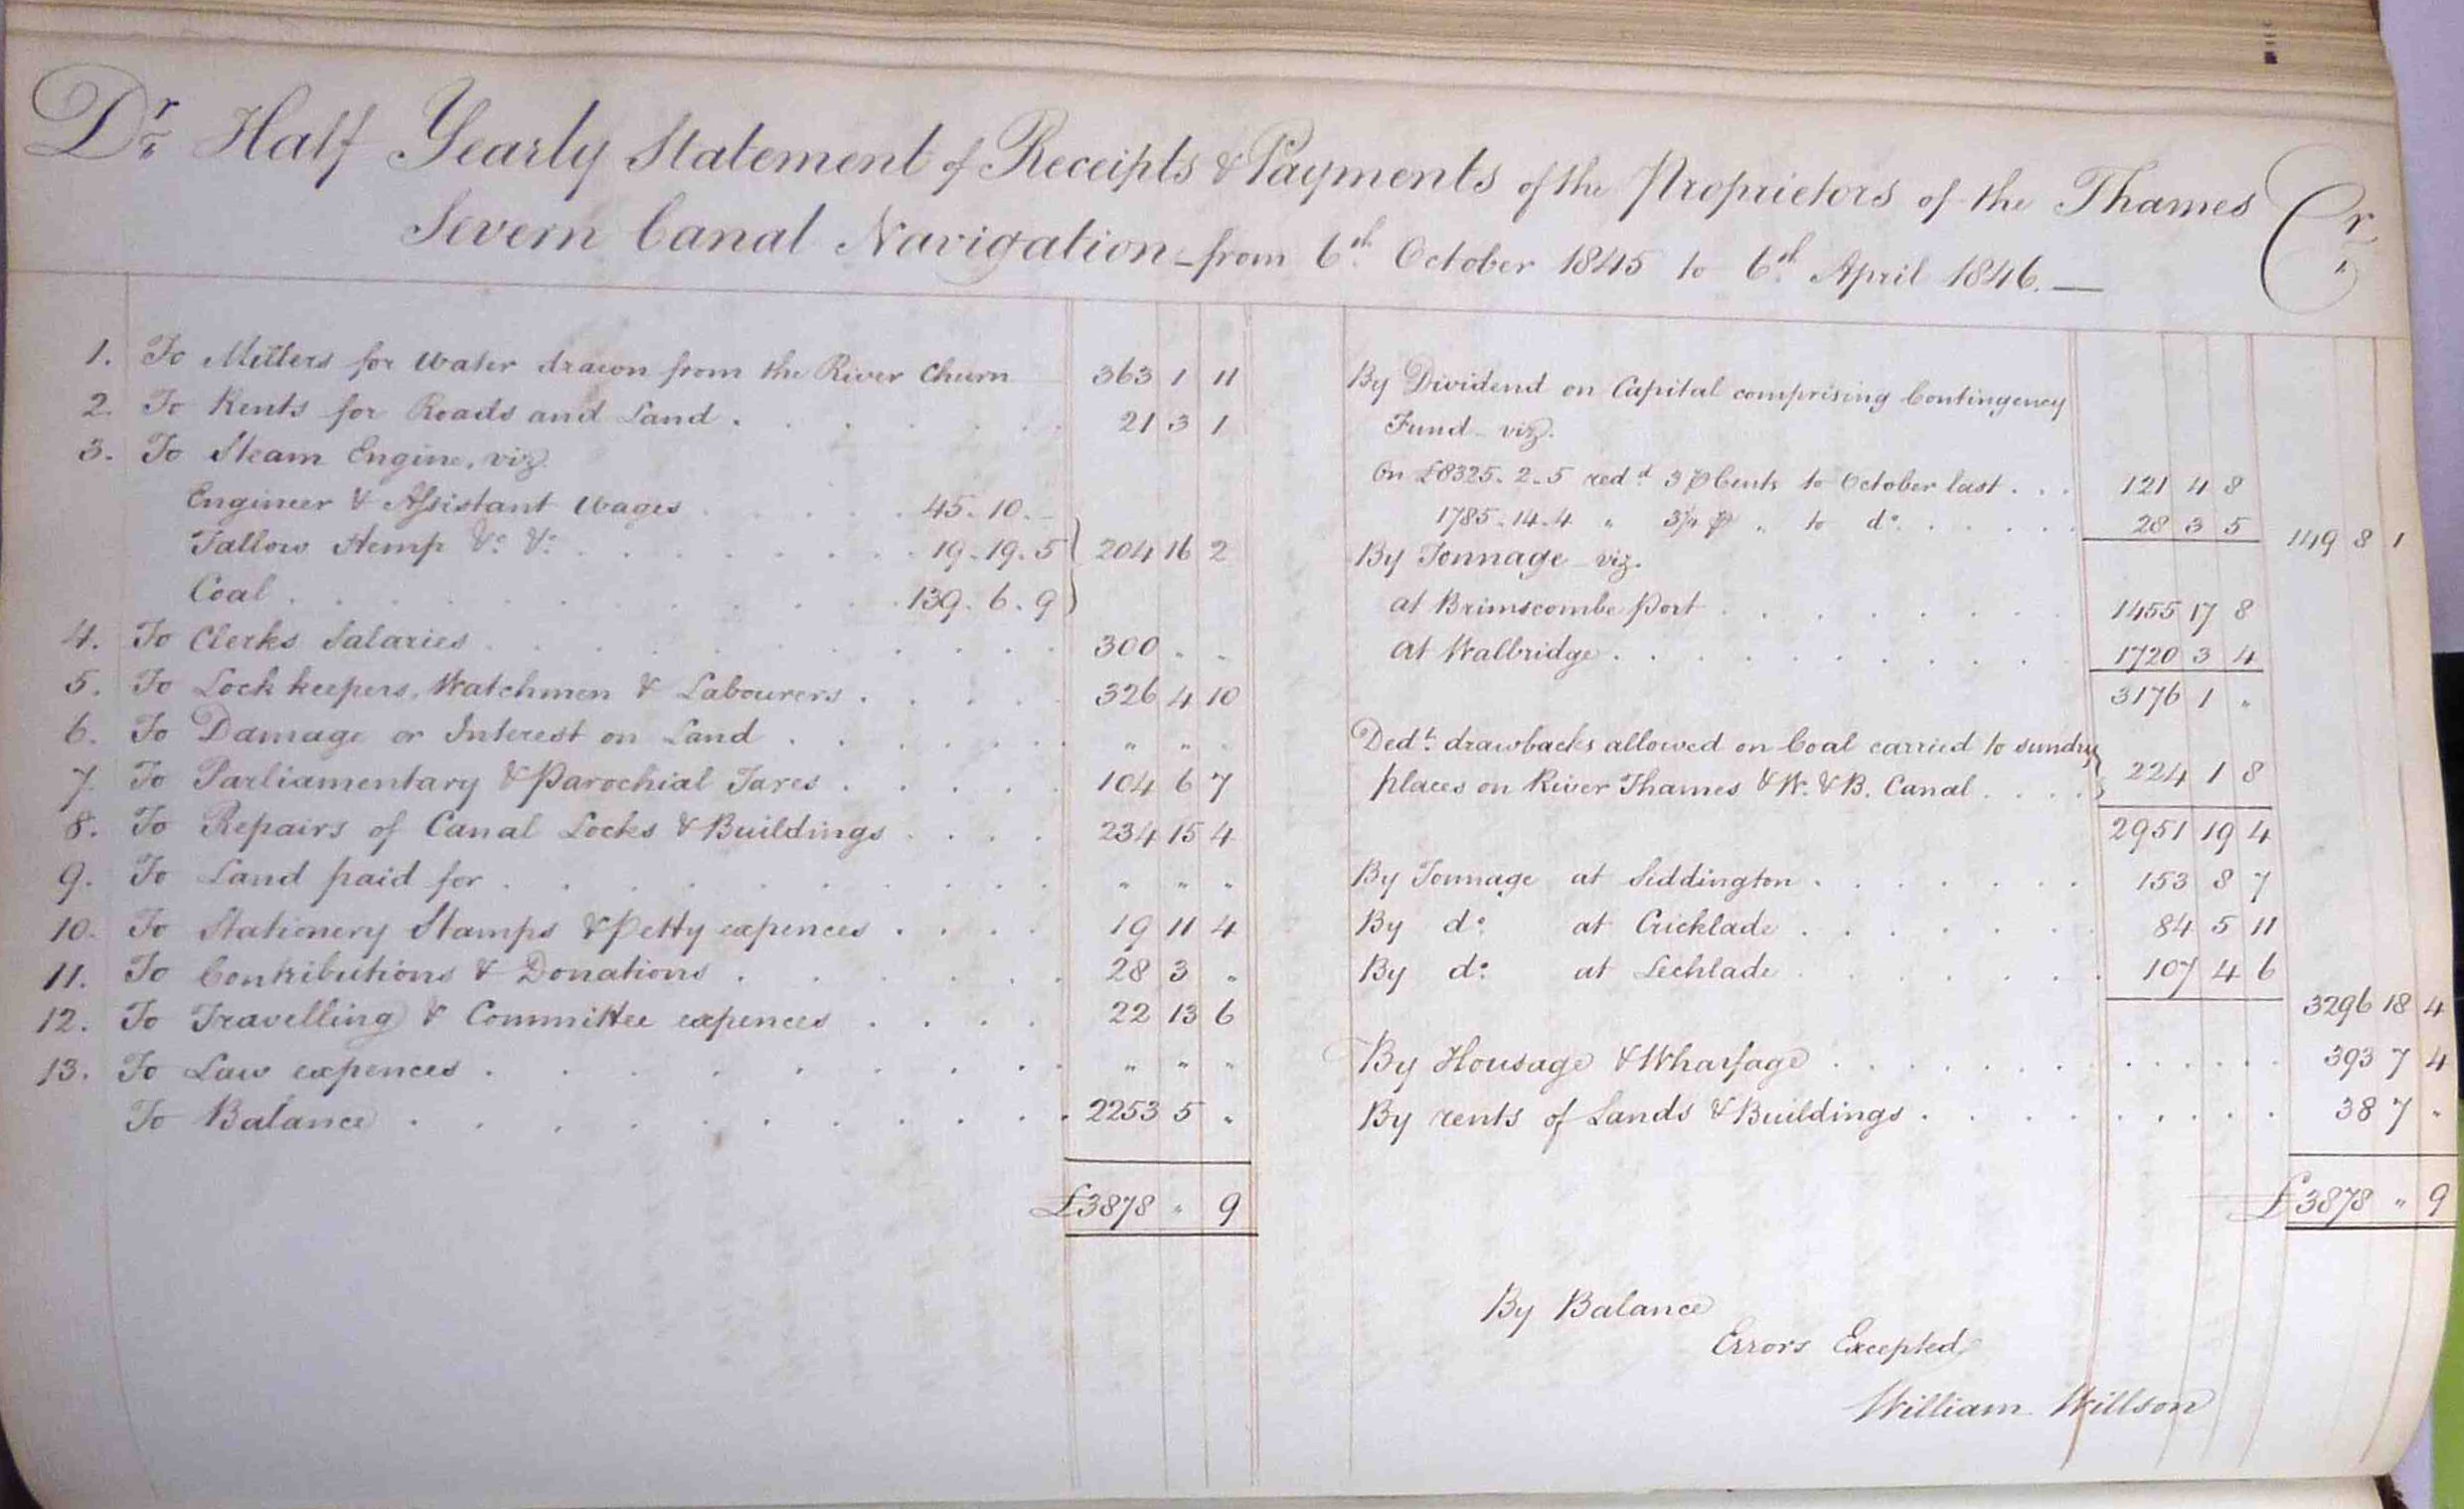 Dr. Half Yearly Statement of Receipts & Payments of the Proprietors of the Thames Cr.
Severn Canal Navigation - from 6th October 1845 to 6th April 1846. —
1. To Millers for Water drawn from the River Churn 363 1 11
2. To Rents for Roads and Land . 21 3 1
3. To Steam Engine, viz.
Engineer & Assistant Wages 45. 10. -
Tallow Hemp &c. &c. 19. 19. 5 } 204 16 2
Coal . 139. 6. 9 }
4. To Clerks Salaries 300 " "
5. To Lock keepers, Watchmen & Labourers . 326 4 10
6. To Damage or Interest on Land . " " "
7. To Parliamentary & Parochial Taxes . 104 6 7
8. To Repairs of Canal Locks & Buildings 234 15 4
9. To Land paid for . " " "
10. To Stationery Stamps & Petty expences . 19 11 4
11. To Contributions & Donations . 28 3 "
12. To Travelling & Committee expences . 22 13 6
13. To Law expences . " " "
To Balance . 2253 5 "
£3878 " 9
By Dividend on Capital comprising Contingency
Fund - viz.
On £8325. 2. 5 redd. 3 P Cents to October last . . . 121 4 8
1785. 14. 4 " 3¼ P " to do. 28 3 5 149 8 1
By Tonnage - viz.
at Brimscombe Port . 1455 17 8
at Walbridge . 1720 3 4
3176 1 "
Dedt. drawbacks allowed on Coal carried to sundry }
places on River Thames & W. & B. Canal . . . . } 224 1 8
2951 19 4
By Tonnage at Siddington . 153 8 7
By do. at Cricklade . 84 5 11
By do. at Lechlade . 107 4 6
3296 18 4
By Housage & Wharfage . 393 7 4
By rents of Lands & Buildings . 38 7 "
£3878 " 9
By Balance
Errors Excepted
William Willson